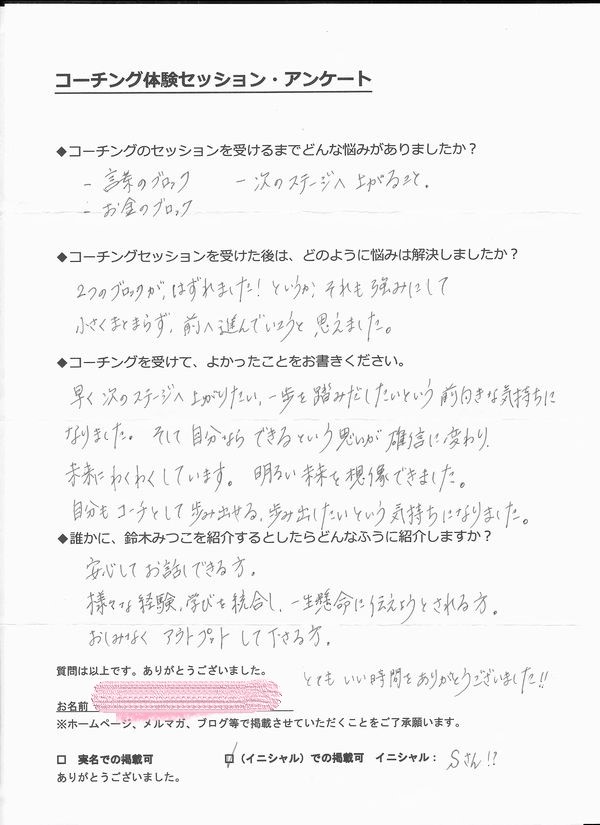 コーチング体験セッション・アンケート
◆コーチングのセッションを受けるまでどんな悩みがありましたか？
- 言葉のブロック　- 次のステージへ上がること。
- お金のブロック
◆コーチングセッションを受けた後は、どのように悩みは解決しましたか？
2つのブロックが、はずれました！というか、それも強みにして
小さくまとまらず、前へ進んでいこうと思えました。
◆コーチングを受けて、よかったことをお書きください。
早く次のステージへ上がりたい、一歩を踏みだしたいという前向きな気持ちに
なりました。そして自分ならできるという思いが確信に変わり、
未来にわくわくしています。明るい未来を想像できました。
自分もコーチとして歩み出せる、歩み出したいという気持ちになりました。
◆誰かに、鈴木みつこを紹介するとしたらどんなふうに紹介しますか？
安心してお話しできる方。
様々な経験、学びを統合し、一生懸命に伝えようとされる方。
おしみなくアウトプットして下さる方。
質問は以上です。ありがとうございました。
とてもいい時間をありがとうございました!!
お名前
※ホームページ、メルマガ、ブログ等で掲載させていただくことをご了承願います。
□ 実名での掲載可　☑（イニシャル）での掲載可　イニシャル： Sさん!?
ありがとうございました。